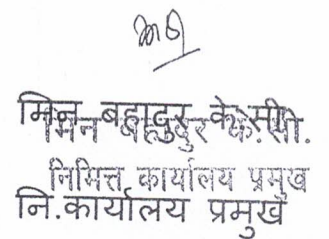 मिन बहादुर के.सी.
मिन बहादुर के.सी.
निमित्त कार्यालय प्रमुख
नि.कार्यालय प्रमुख